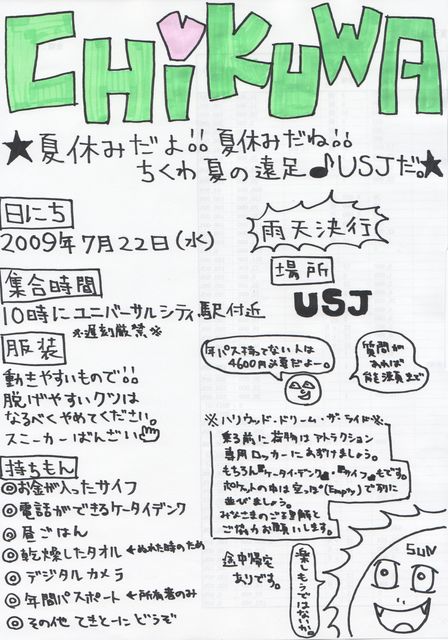 CHiKUWA
★夏休みだよ!! 夏休みだね!!
ちくわ夏の遠足♪USJだ。★
日にち
2009年7月22日(水)
雨天決行
集合時間
10時にユニバーサルシティ駅付近
※遅刻厳禁※
場所
USJ
服装
動きやすいもので!!
脱げやすいクツは
なるべくやめてください。
スニーカーばんざい
年パス持ってない人は
4600円必要だよー。
質問が
あれば
まで
※ハリウッド・ドリーム・ザ・ライド※
乗る前に荷物はアトラクション
専用ロッカーにあずけましょう。
もちろん『ケータイ・デンク』・『サイフ』もです。
ポケットの中は空っぽ(Empty)で列に
並びましょう。
みなさまのご理解と
ご協力お願いします。
持ちもん
◎お金が入ったサイフ
◎電話ができるケータイデンク
◎昼ごはん
◎乾燥したタオル ←ぬれた時のため
◎デジタルカメラ
◎年間パスポート ←所有者のみ
◎その他 てきとーに どうぞ
途中帰宅
ありです。
楽しもうではないか。
SUN